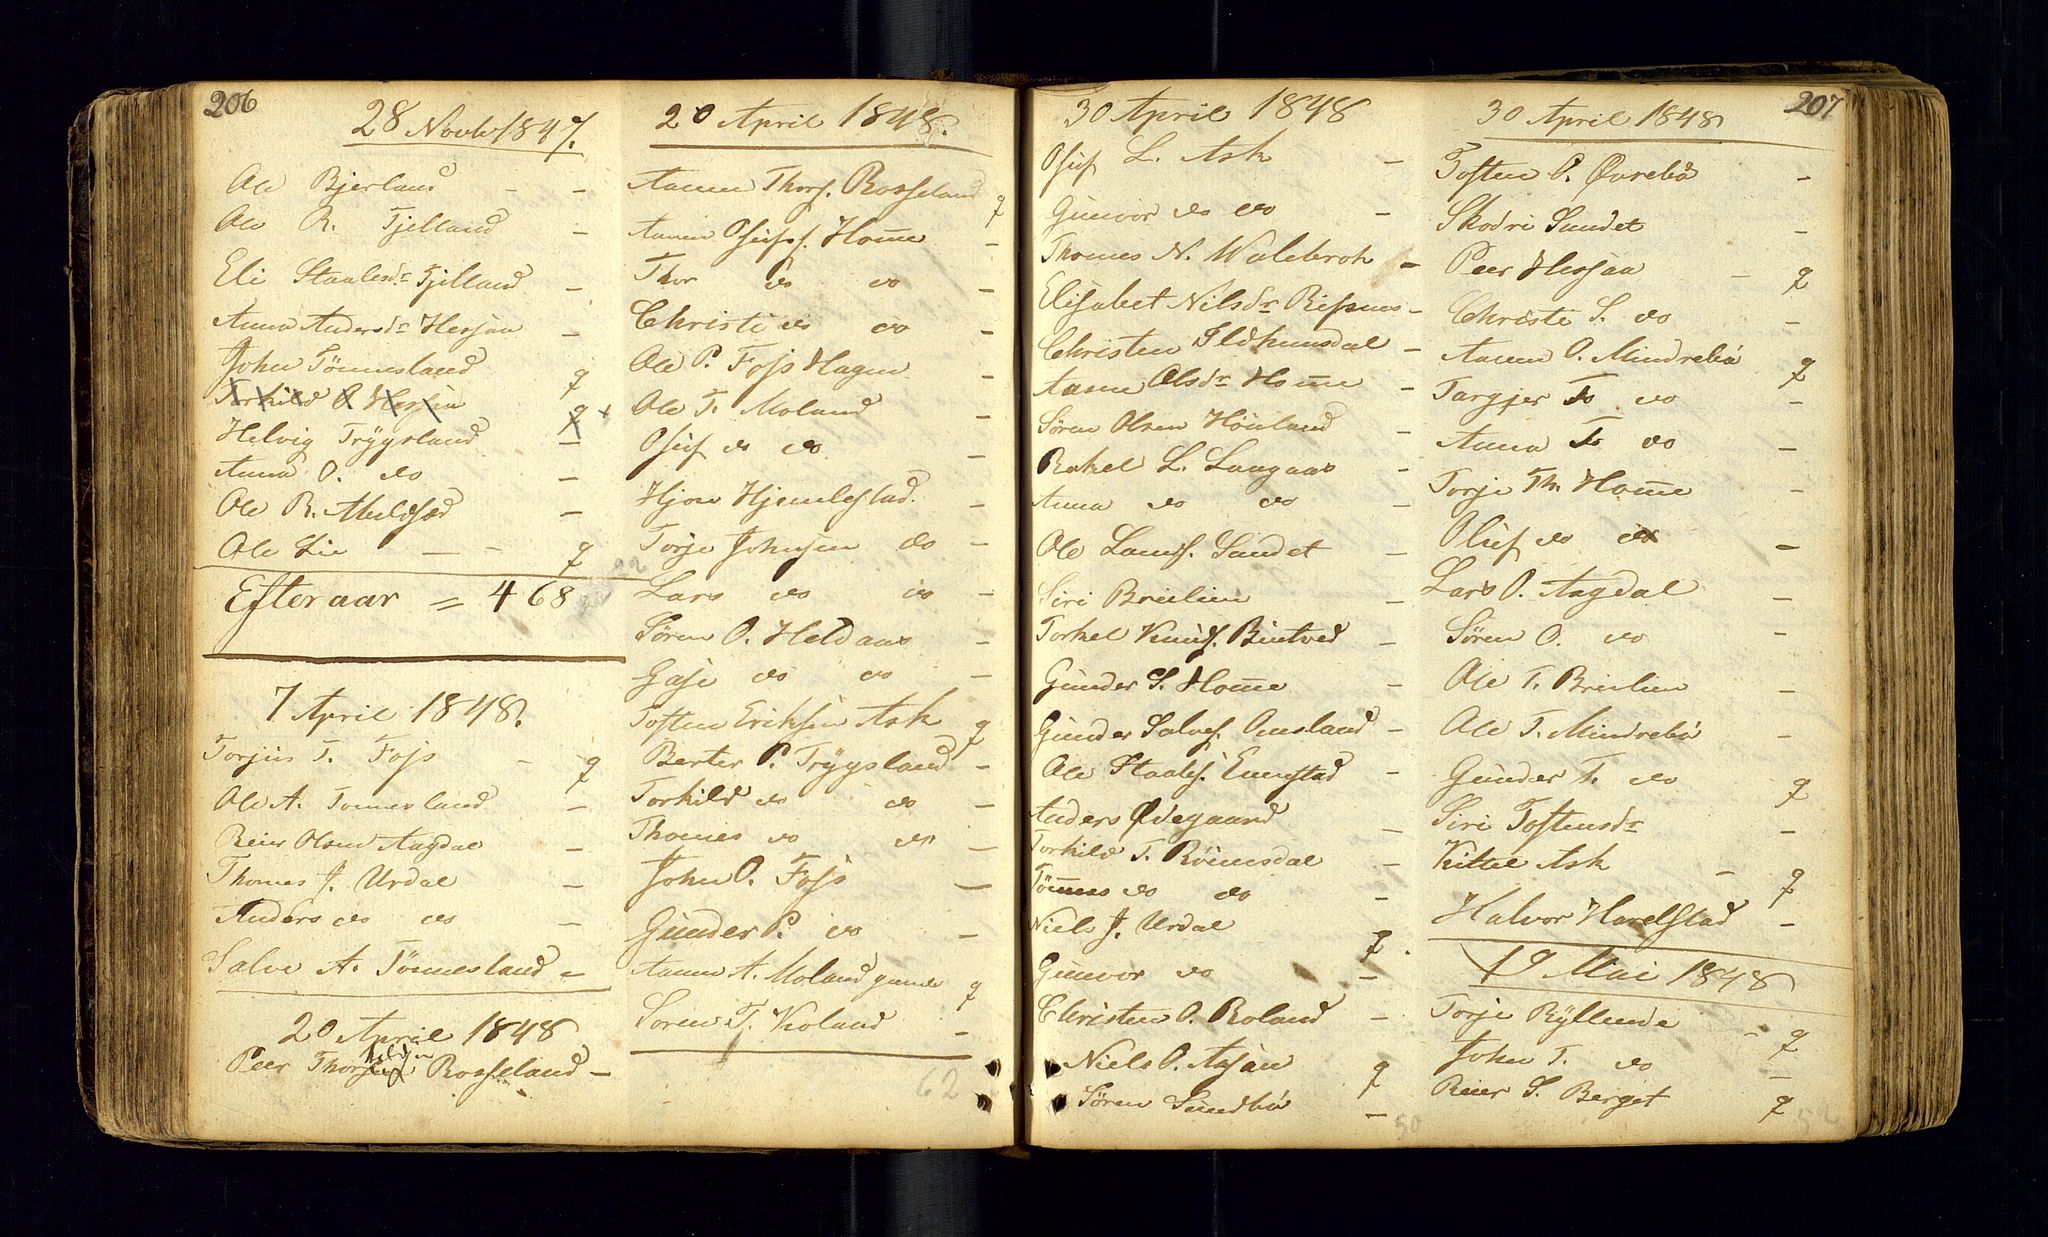 206
28 Novbr 1847.
Ole Bjerland - -
Ole R. Fjelland -
Eli Staalesdr Fjelland -
Anna Andersdr Hessaa -
John Tönnesland q
Torkild O Hessaa q
Helvig Trÿgsland -
Anna O. do -
Ole R. Abelsæd -
Ole Lie - - q
Efteraar = 468
7 April 1848.
Torjus T. Foss - q
Ole A. Tonnesland -
Reier Olsen Aagdal -
Thomes J. Urdal -
Anders do do -
Salve A. Tönnesland -
20 April 1848
Peer Thorkildsen Rosseland -
20 April 1848.
Aanen Thors. Rosseland q
Aanen Osufs. Home -
Thor do do -
Christi do do -
Ole P. Foss Hagen -
Ole T. Moland -
Osuf do do -
Hjon Hjemlestad. -
Torje Johnsen do -
Lars do do -
Sören O. Heldaas -
Gase do do -
Tosten Eriksen Ask q
Berter P. Trÿgsland -
Torkild do do -
Thomes do do -
John O. Foss -
Gunder P. do -
Aanen A. Moland gamle q
Soren T. Roland -
62
30 April 1848
Osuf L. Ask -
Gunvor do do -
Thomes N. Walebrok -
Elisabet Nilsdr Risnes -
Christen Ildhunsdal -
Aasne Olsdr Home -
Sören Olsen Hönland -
Rakel L. Laagaas -
Anna do do -
Ole Lauris. Sundet -
Siri Breilien -
Torkel Knuds. Bintved -
Gunder S. Home -
Gunder Salves. Omsland -
Ole Staales. Eunestad -
Anders Ødegaard -
Torkild T. Röinsdal -
Tönnes do do -
Niels J. Urdal q.
Gunvor do -
Christen O. Roland -
Niels O. Assan q
Sören Sundbö -
50
207
30 April 1848
Tosten O. Øvrebö -
Skodri Sundet -
Peer Hessaa - q
Christi S. do -
Aanen O. Mindrebö q
Targjer To do -
Anna To do -
Torje Th. Home -
Oluf do do -
Lars O. Aagdal -
Sören O. do -
Ole T. Breilien -
Ole T. Mindrebö -
Gunder T. do q
Siri Tostensdr -
Kittel Ask - q
Halvor Harelstad -
19 Mai 1848
Torje Rÿllende - q
John T. do -
Reier S. Berget q
52